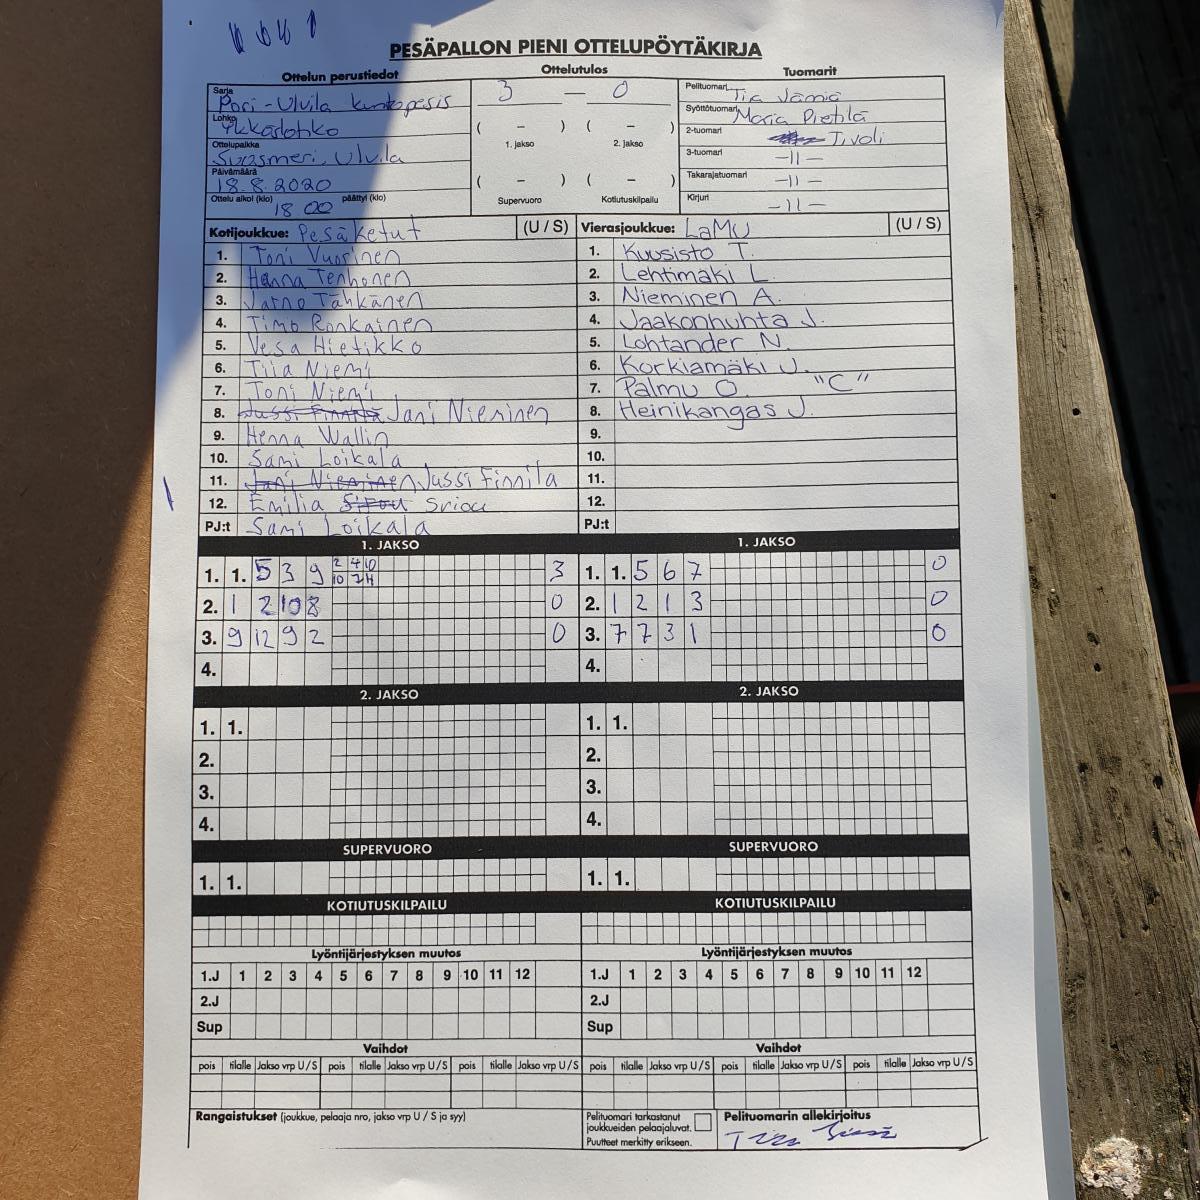 PESÄPALLON PIENI OTTELUPÖYTÄKIRJA
Ottelun perustiedot Ottelutulos Tuomarit
Sarja Pori-Ulvila kuntopesis
Lohko Ykköslohko
Ottelupaikka Suosmeri, Ulvila
Päivämäärä 18.8.2020
Ottelu alkoi (klo) 18 00 päättyi (klo)
3 — 0
( – ) ( – )
1. jakso 2. jakso
( – ) ( – )
Supervuoro Kotiutuskilpailu
Pelituomari Tia Jämiä
Syöttötuomari Maria Pietilä
2-tuomari Tivoli
3-tuomari -11-
Takarajatuomari -11-
Kirjuri -11-
Kotijoukkue: Pesäketut (U / S) Vierasjoukkue: LaMu (U / S)
1. Toni Vuorinen 1. Kuusisto T.
2. Hanna Tenhonen 2. Lehtimäki L.
3. Jarno Tähkänen 3. Nieminen A.
4. Timo Ronkainen 4. Jaakonhuhta J.
5. Vesa Hietikko 5. Lohtander N.
6. Tiia Niemi 6. Korkiamäki J.
7. Toni Niemi 7. Palmu O. "C"
8. Jani Nieminen 8. Heinikangas J.
9. Henna Wallin 9.
10. Sami Loikala 10.
11. Jani Nieminen Jussi Finnilä 11.
12. Emilia Sriou 12.
PJ:t Sami Loikala PJ:t
1. JAKSO 1. JAKSO
1. 1. 5 3 9 2 4 10 3 1. 1. 5 6 7 0
10 7 11
2. 1 2 10 8 0 2. 1 2 1 3 0
3. 9 12 9 2 0 3. 7 7 3 1 0
4. 4.
2. JAKSO 2. JAKSO
1. 1. 1. 1.
2. 2.
3. 3.
4. 4.
SUPERVUORO SUPERVUORO
1. 1. 1. 1.
KOTIUTUSKILPAILU KOTIUTUSKILPAILU
Lyöntijärjestyksen muutos Lyöntijärjestyksen muutos
1.J 1 2 3 4 5 6 7 8 9 10 11 12 1.J 1 2 3 4 5 6 7 8 9 10 11 12
2.J 2.J
Sup Sup
Vaihdot Vaihdot
pois tilalle Jakso vrp U / S pois tilalle Jakso vrp U / S pois tilalle Jakso vrp U / S pois tilalle Jakso vrp U / S pois tilalle Jakso vrp U / S pois tilalle Jakso vrp U / S
Rangaistukset (joukkue, pelaaja nro, jakso vrp U / S ja syy)
Pelituomari tarkastanut
joukkueiden pelaajaluvat.
Puutteet merkitty erikseen.
Pelituomarin allekirjoitus